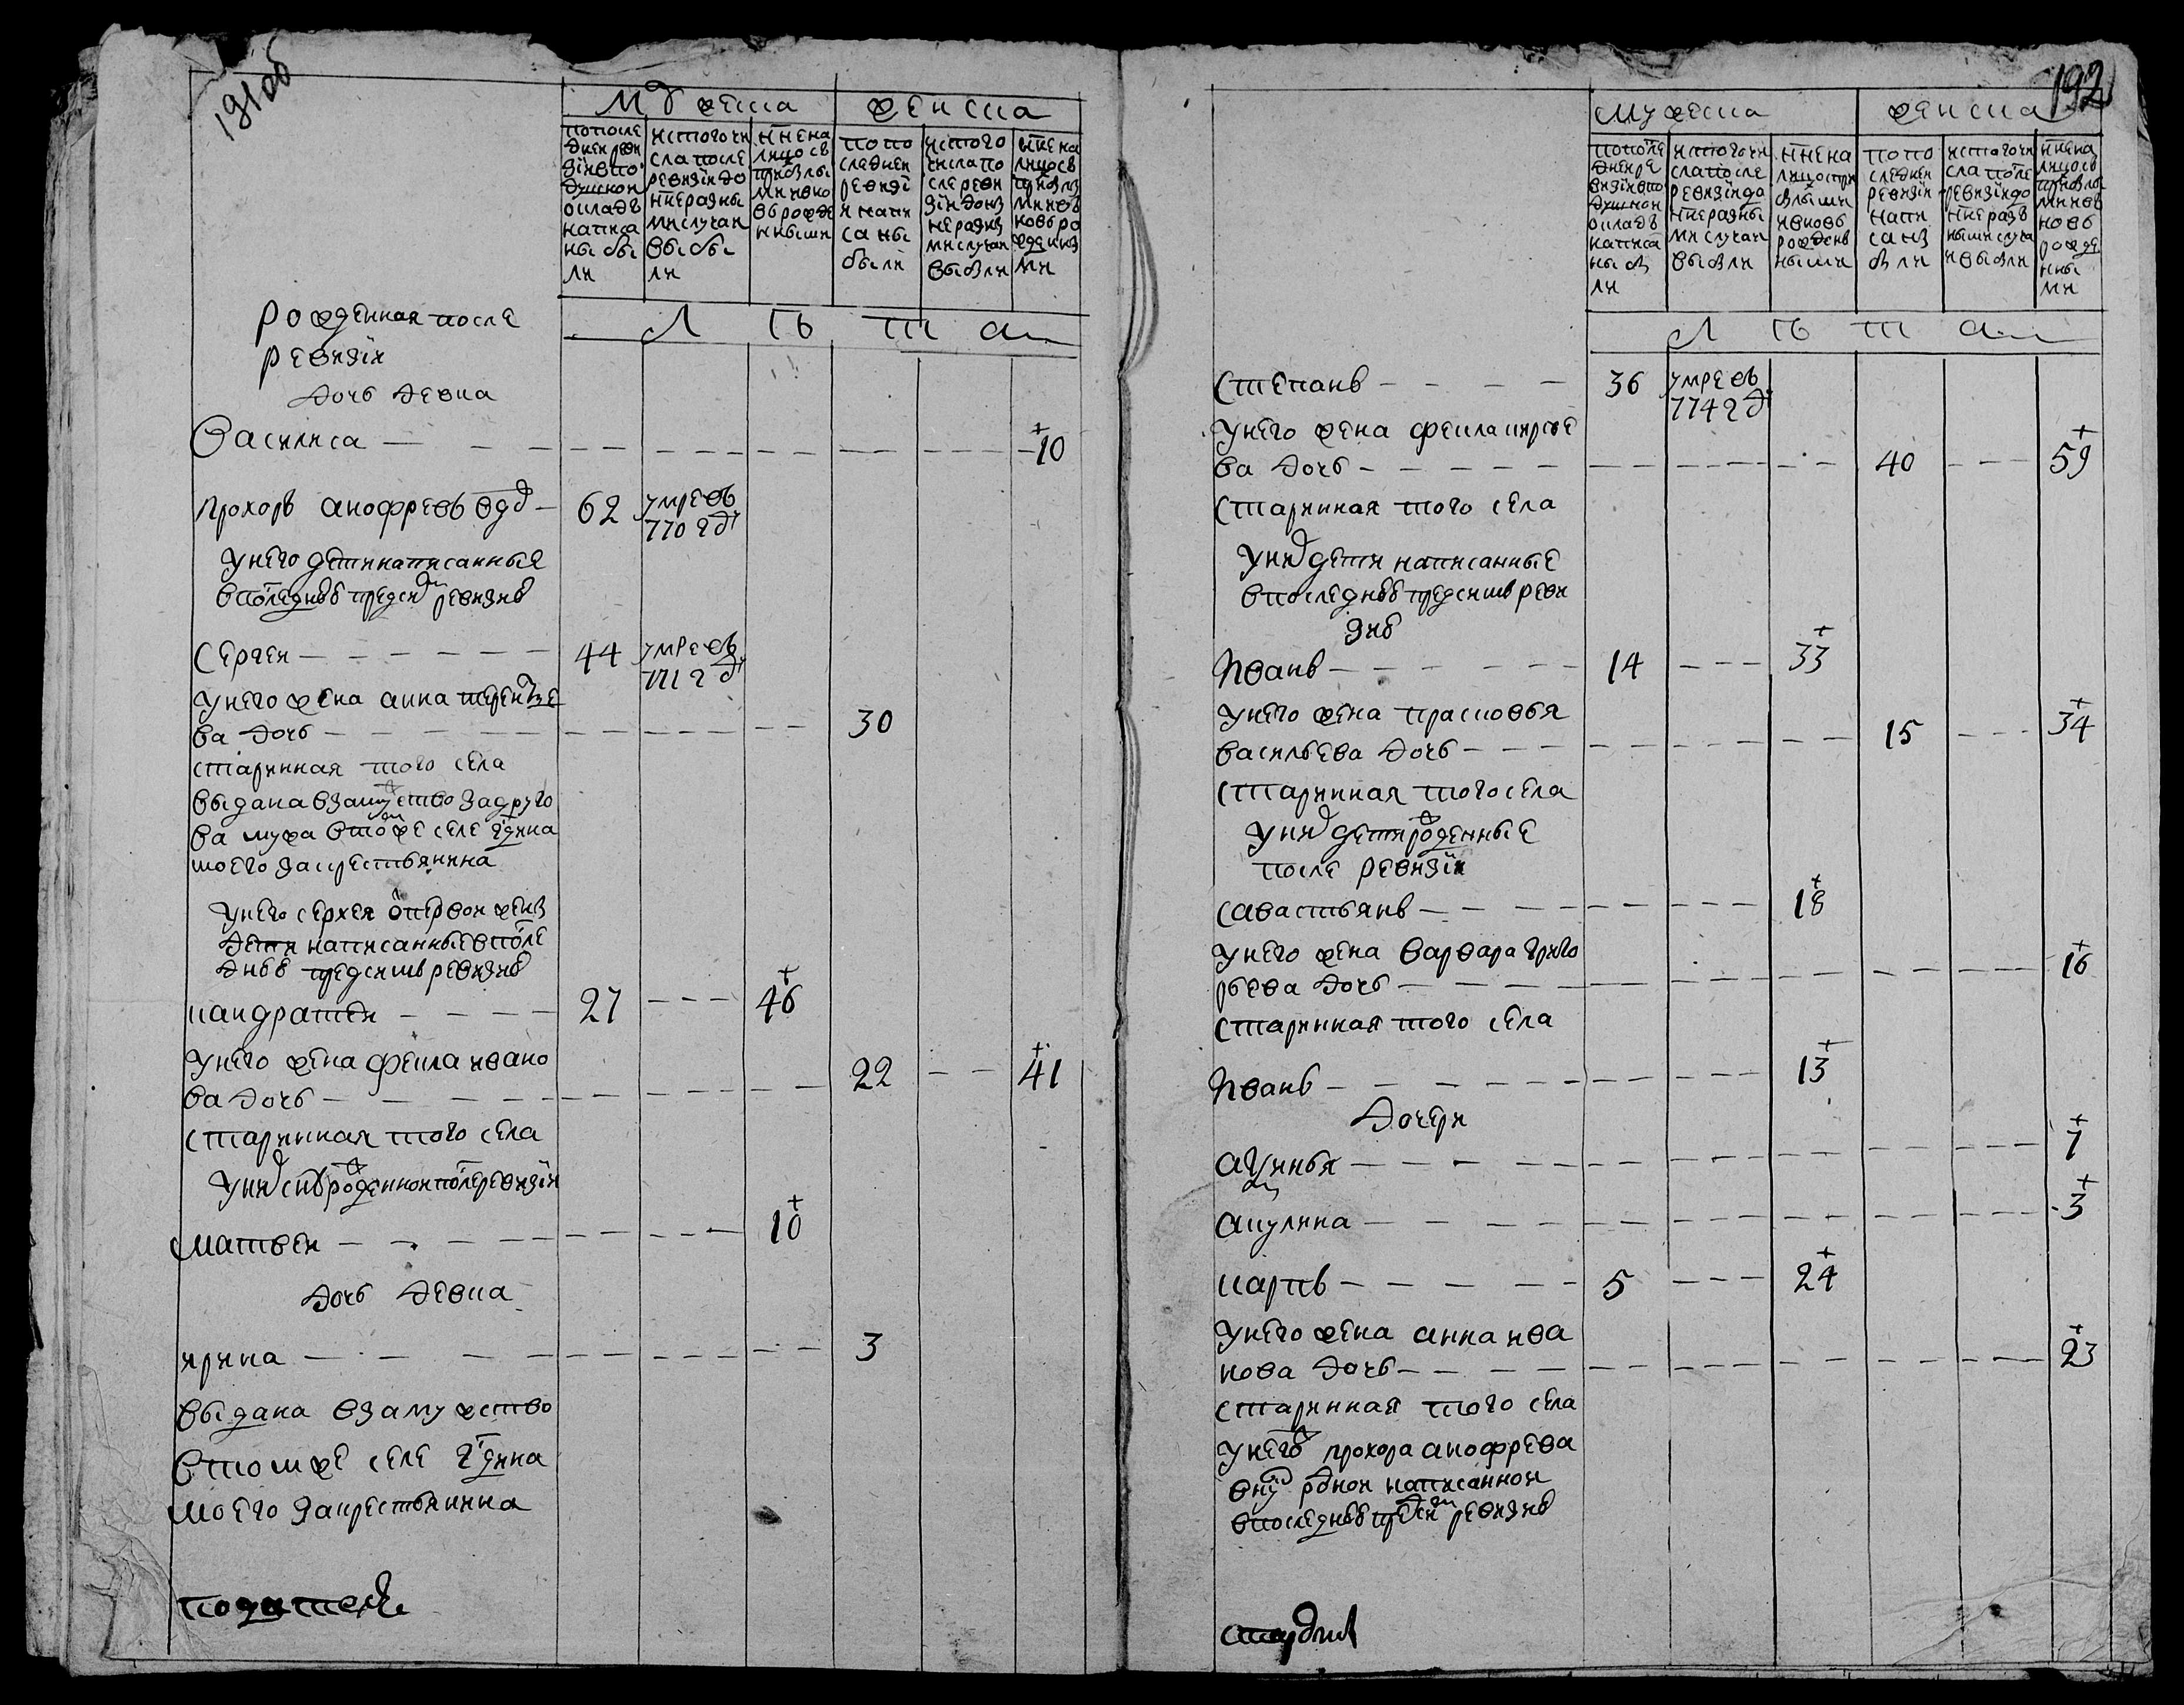 191об
мужеска
женска
попосле
днеи реви
зiи впо
душнои
окладъ
написа
ны бы
ли
истогочи
сла после
ревизiи до
нне разны
ми случаи
выбы
ли
нне на
лицо съ
прибылы
ми ивно
въ рожде
нными
по по
следнеи
ревизi
и напи
саны
были
истого
числа по
сле реви
зiи доны
не разны
ми случаи
выбыли
нне на
лицо съ
прибылы
ми ивъ
новь ро
жденны
ми
лѣта
рожденная после
ревизiи
дочь девка
Василиса 10
прохоръ анофреевъ вдд 62 умре въ
770 гд
унего дети написанныя
впоследнѣй предсим ревизиѣ
Сергеи 44 умре въ
771 гд
унего жена анна терентье
ва дочь 30
старинная того села
выдана взамужество задруго
ва мужа втомже селе гдина
моего закрестьянина
унего сергея отпервои жены
дети написанныевпосле
днѣй предсимъ ревизиѣ
кандратеи 27 46
унего жена фекла ивано
ва дочь 22 41
старинная того села
уних снъ рожденнои после ревизiи
матвеи 10
дочь девка
ирина 3
выдана взамужство
втомже селе гдина
моего закрестьянина
192
мужеска
женска
попосле
днеи ре
визiи впо
душнои
окладъ
написа
ны бы
ли
истогочи
сла после
ревизiи до
нне разны
ми случаи
выбыли
нне на
лицо спри
былыми
ивновь
рожденъ
ными
по по
следнеи
ревизiи
напи
саны
были
истогочи
сла после
ревизiи до
нне разъ
ными случа
и выбыли
нне на
лицо съ
прибылы
ми ивъ
новь
рожде
нны
ми
лѣта
Степанъ 36 умре въ
774 гд
унего жена фекла кирсе
ва дочь 40 59
Старинная того села
уних дети написанныя
впоследнѣй предсимъ реви
зиѣ
Иванъ 14 33
унего жена прасковья
васильева дочь 15 34
старинная того села
уних дети рожденныя
после ревизiи
савастьянъ 18
унего жена варвара григо
рьева дочь 16
старинная того села
Иванъ 13
дочери
акулина 3
карпъ 5 24
унего жена анна ива
нова дочь 23
старинная того села
унегож прохора анофреева
внук роднои написаннои
впоследнѣй предсим ревизиѣ